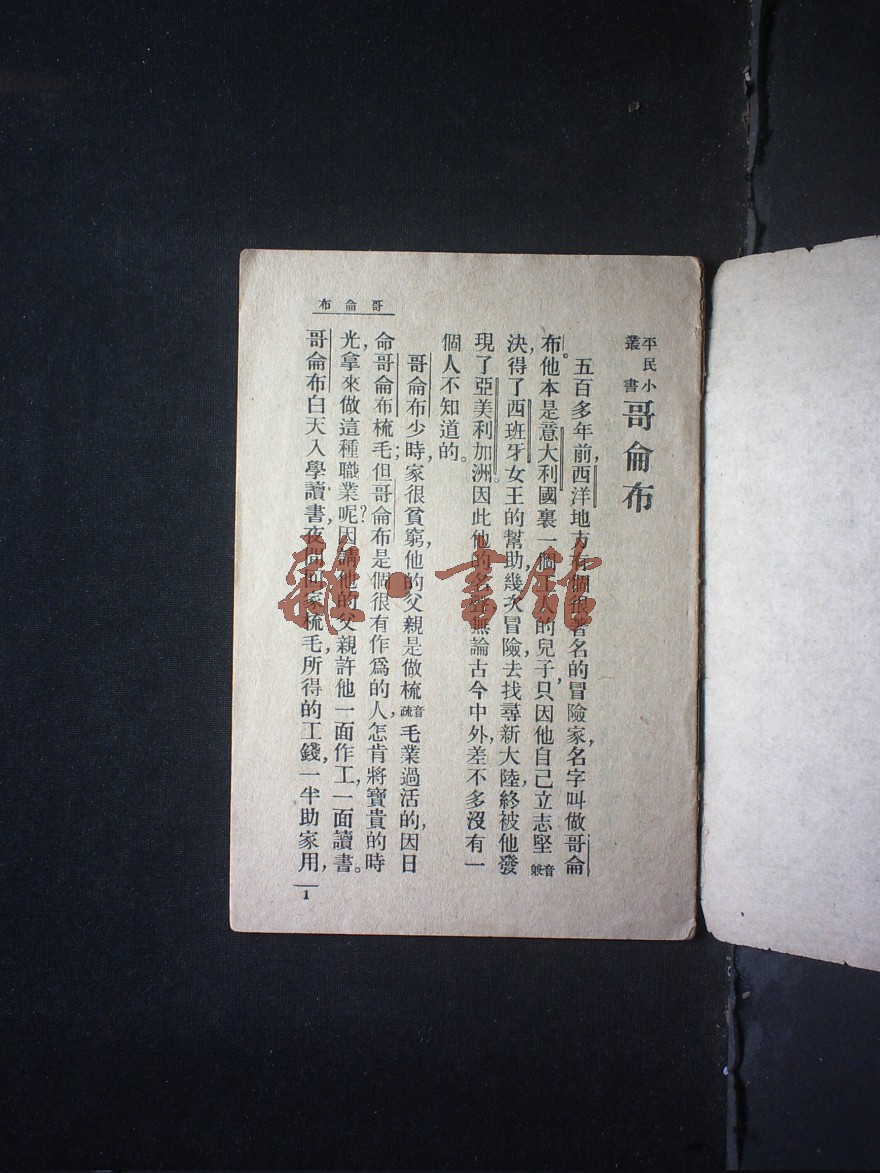 平民小
叢書
哥侖布
五百多年前，西洋地方有個很著名的冒險家，名字叫做哥侖
布。他本是意大利國裏一個工人的兒子，只因他自己立志堅音
決，得了西班牙女王的幫助，幾次冒險，去找尋新大陸，終被他發
現了亞美利加洲。因此他的名聲，無論古今中外，差不多沒有一
個人不知道的。
哥侖布少時，家很貧窮，他的父親是做梳音疏毛業過活的，因日
命哥侖布梳毛；但哥侖布是個很有作爲的人，怎肯將寶貴的時
光，拿來做這種職業呢？因請他的父親許他一面作工，一面讀書。
哥侖布白天入學讀書，夜間回家梳毛，所得的工錢，一半助家用，
哥侖布
1
雜·書館